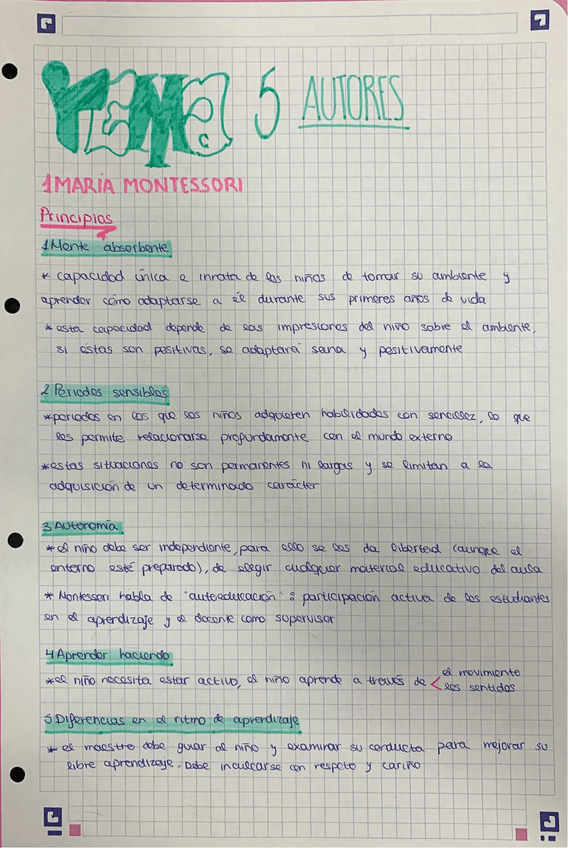 TEMA 5 AUTORES
1 MARÍA MONTESSORI
Principios
1 Mente absorbente
* capacidad única e innata de los niños de tomar su ambiente y
aprender cómo adaptarse a él durante sus primeros años de vida
* esta capacidad depende de las impresiones del niño sobre el ambiente,
si estas son positivas, se adaptará sana y positivamente
2 Periodos sensibles
* periodos en los que los niños adquieren habilidades con sencillez, lo que
les permite relacionarse profundamente con el mundo externo
* estas situaciones no son permanentes ni largas y se limitan a la
adquisición de un determinado carácter
3 Autonomía
* el niño debe ser independiente, para ello se les da libertad (aunque el
entorno esté preparado), de elegir cualquier material educativo del aula
* Montessori habla de "autoeducación": participación activa de los estudiantes
en el aprendizaje y el docente como supervisor
4 Aprender haciendo
* el niño necesita estar activo, el niño aprende a través de < el movimiento
los sentidos
5 Diferencias en el ritmo de aprendizaje
* el maestro debe guiar al niño y examinar su conducta para mejorar su
libre aprendizaje. Debe inculcarse con respeto y cariño